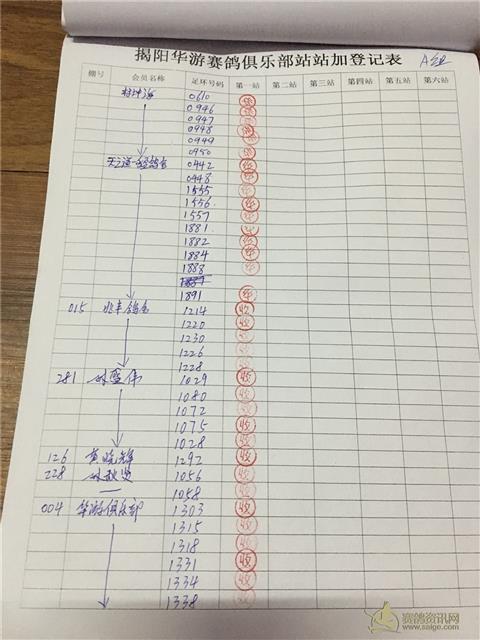 揭阳华游赛鸽俱乐部站站加登记表 A组
棚号 会员名称 足环号码 第一站 第二站 第三站 第四站 第五站 第六站
0610
0946
0947
0948
0949
0950
0442
0448
1555
1556
1557
1881
1882
1884
1888
1891
015 1214 收
1220 收
1230
1226
1228
281 1029 收
1080
1072
1075 收
1028 收
126 黄晓辉 1292 收
228 1056 收
1058
004 华游俱乐部 1303 收
1315
1318
1331 收
1334
1338
赛鸽资讯网
www.saige.com